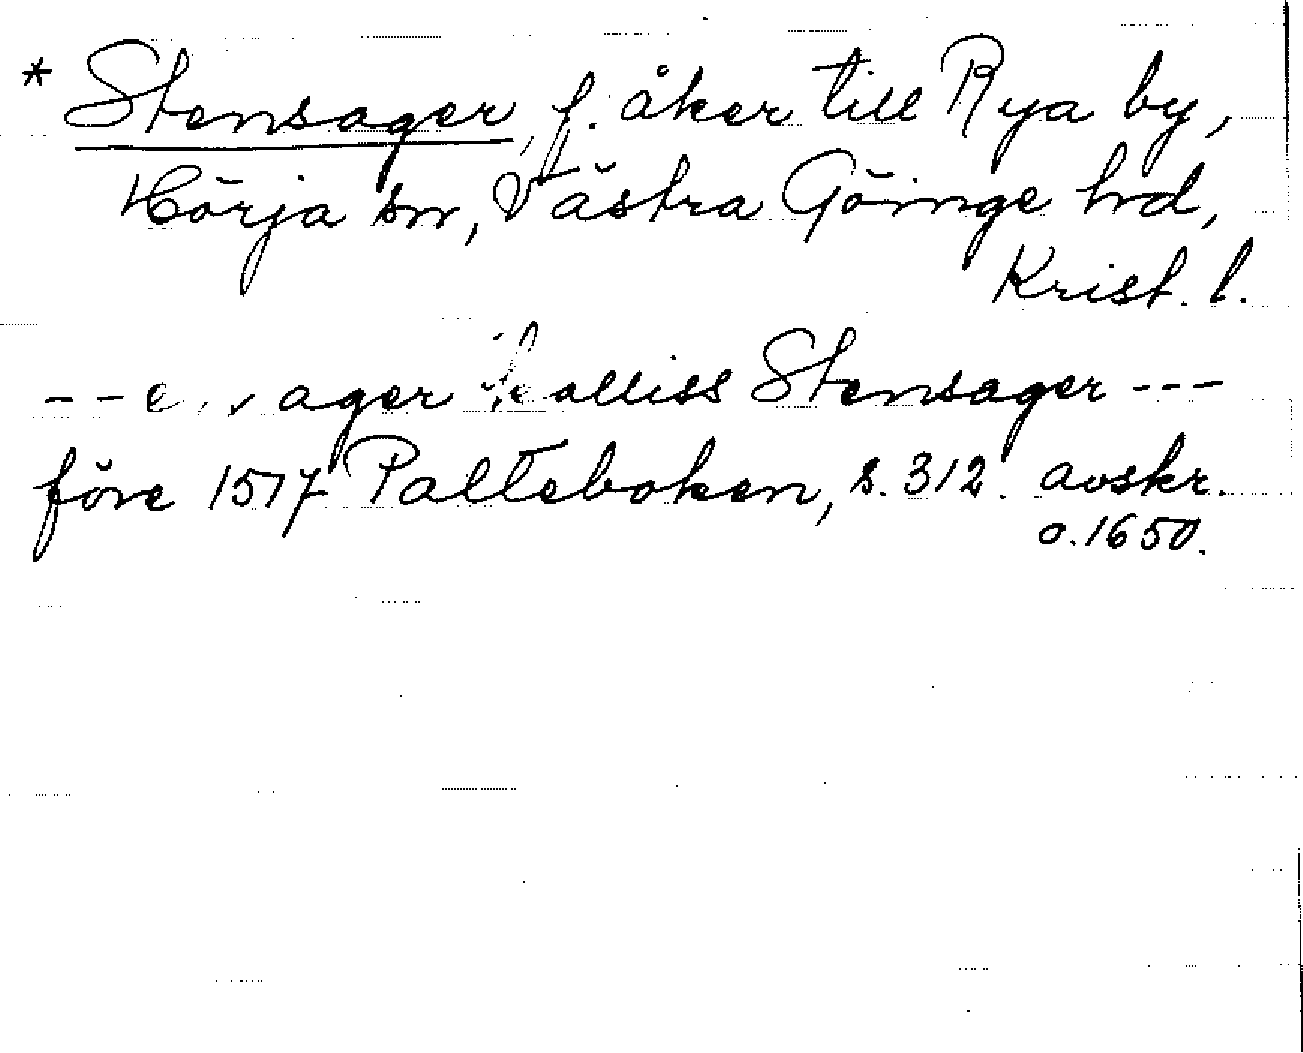 * Stensager, f. åker till Rya by,
Hörja sn, Västra Göinge hd,
Krist. l.
-- ager kalliss Stensager ---
före 1517 Palteboken, s. 312. avskr.
o. 1650.